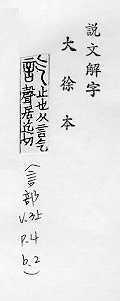 說文解字
大徐本
訖
止也从言气
聲居迄切
(言部
v.3上
p.4
b.2)